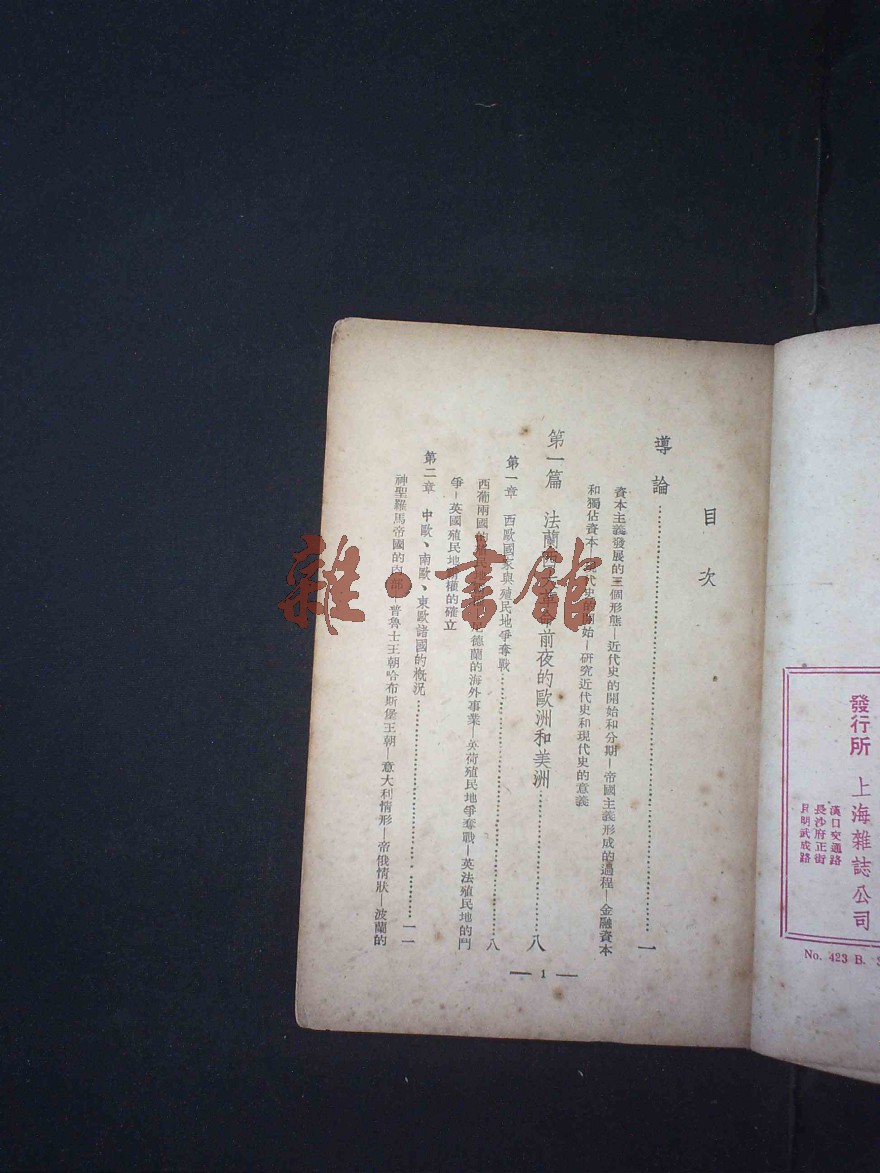 目次
導論……一
資本主義發展的三個形態—近代史的開始和分期—帝國主義形成的過程—金融資本
和獨佔資本—現代史的開始—研究近代史和現代史的意義
第一篇 法蘭西大革命前夜的歐洲和美洲……八
第一章 西歐國家與殖民地爭奪戰……八
西葡兩國的殖民地德蘭的海外事業—英荷殖民地爭奪戰—英法殖民地的鬥
爭—英國殖民地霸權的確立
第二章 中歐、南歐、東歐諸國的概況……一一
神聖羅馬帝國的內部—普魯士王朝哈布斯堡王朝—意大利情形—帝俄情狀—波蘭的
— 1 —
發行所 上海雜誌公司
漢口交通路
長沙府正街
昆明武成路
No. 423 B.
雜·書館